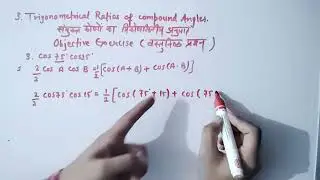 3. Trigonometrical Ratios of compound Angles.
संयुक्त कोणों का त्रिकोणमितीय अनुपात
Objective Exercise (वस्तुनिष्ठ प्रश्न)
3. cos75°cos15°
= 2/2 cos A cos B = 1/2 [cos(A+B) + cos(A-B)]
2/2 cos75° cos15 = 1/2 [cos(75°+15) + cos(75